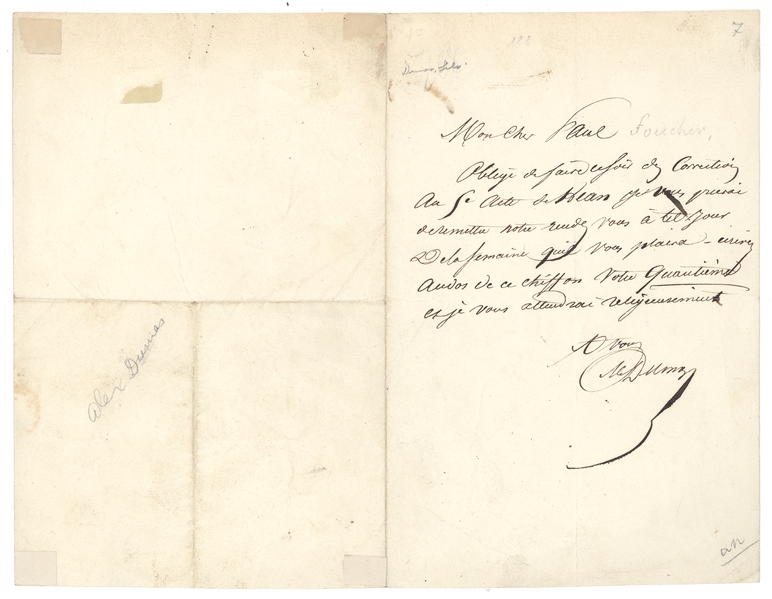 7
Dumas, fils.
Mon cher Paul Foucher,
Obligé de faire ce soir des Corrections
Au 5e Acte de Kean je vous prierai
de remettre notre rendez vous à tel jour
De la semaine qu'il vous plaira - écrivez
Au dos de ce chiffon votre Quantième
et je vous attendrai religieusement
A vous
Al Dumas
Alex Dumas